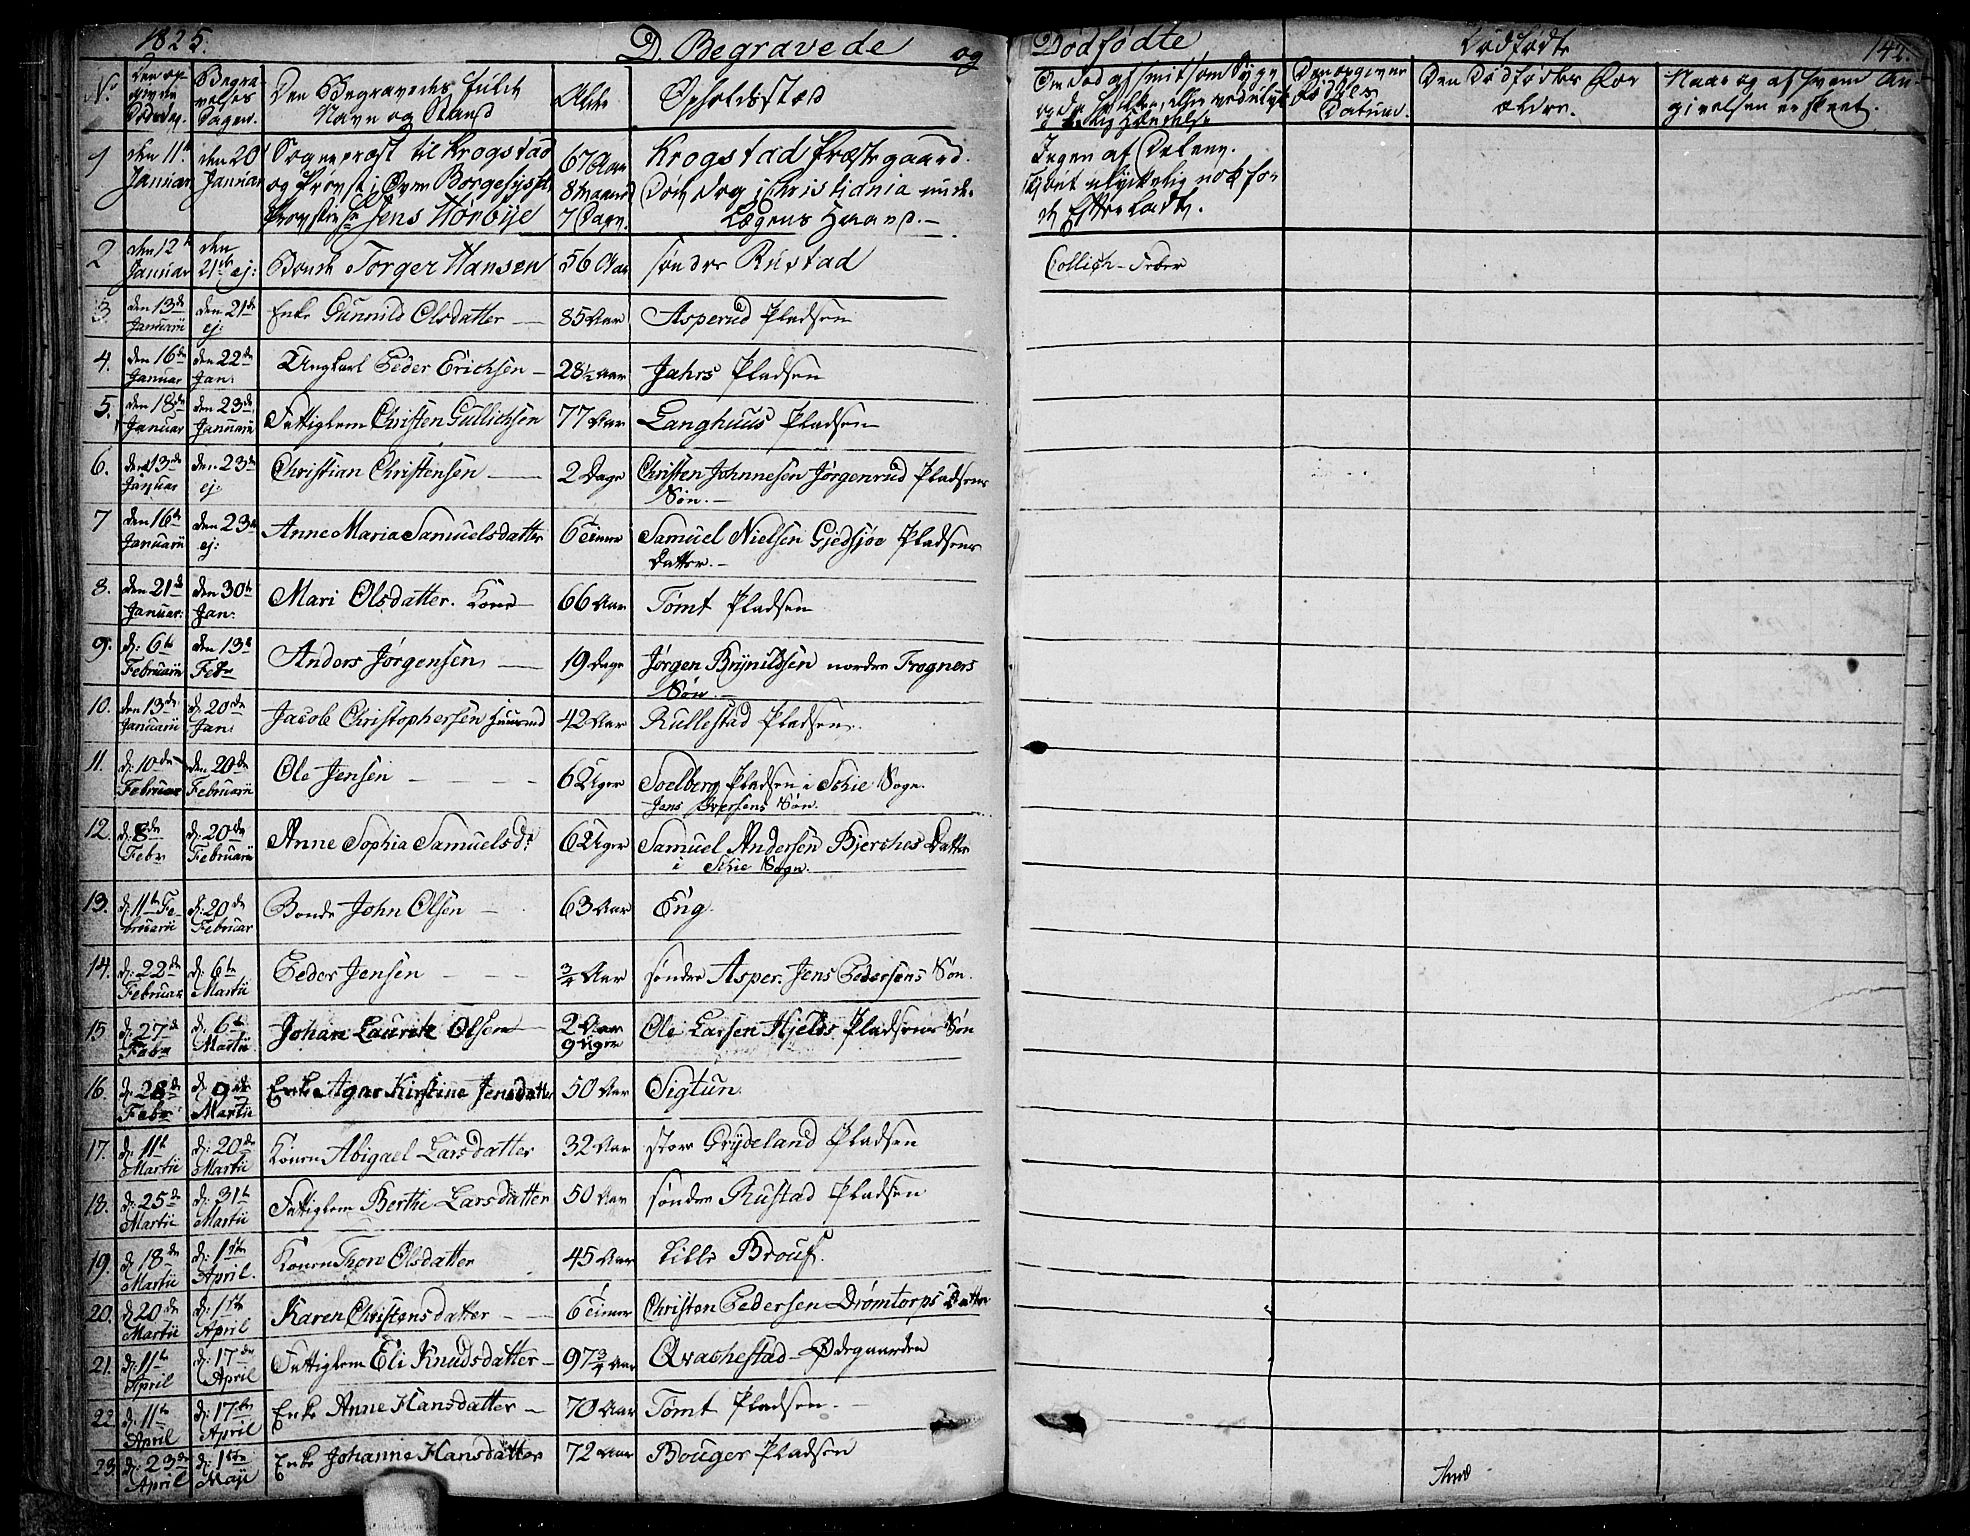 1825. D. Begravede og Dødfødte Dødfødte 142.
No Den op givne Dødsdag. Begra velses Dagen. Den Begravedes fulde Navn og Stand Alder Opholdsstæd
Den opgivne Fødsels Datum. Den Dødfødtes For ældre. Naar og af hvem An givelsen er skeet.
1 den 11te Januar den 20 Januar Sognepræst til Krogstad og Provst i Øvre Borgesyssels Provstie Hr Jens Hørbye 67 Aar 8 Maaned 7 Dage. Krogstad Præstegaard. Døde dog i Christiania under Lægens Haand. Ingen af Delene.
2 den 12te Januar den 21de ej: Bonde Torger Hansen 56 Aar søndre Rustad Feber
3. den 13de Januarii den 21de ej: Enke Gunnild Olsdatter 85 Aar Asperud Pladsen
4. den 16de Januar den 22de Jan. Ungkarl Peder Erichsen 28½ Aar Jahrs Pladsen
5. den 18de Januar den 23de Januarii Fattiglem Christen Gullichsen 77 Aar Langhuus Pladsen
6. den 13de Januar den 23de ej: Christian Christensen 2 Dage Christen Johnnesen Jørgenrud Pladsens Søn.
7 den 16te Januarii den 23de ej: Anne Maria Samuelsdatter 6 Timer Samuel Nielsen Gjedsjøe Pladsens Datter.
8. den 21de Januar. den 30te Jan. Mari Olsdatter. Kone 66 Aar Tømt Pladsen
9. d: 6te Februarii den 13de Febr Anders Jørgensen 19 Dage Jørgen Brynildsen nordre Frogners Søn.
10. den 13de Januarii d: 20de Jan. Jacob Christophersen Huusmd 42 Aar Rullestad Pladsen.
11. d: 10de Februar den 20de Februarii Ole Jensen 6 Uger Soelberg Pladsen i Skie Sogn. Jens Iversens Søn.
12. d: 8de Febr d: 20de Februarii Anne Sophia Samuelsdr 6 Uger Samuel Andersen Bjerches Datter i Skie Sogn.
13. d: 11te Februarii d: 20de Februar Bonde John Olsen 63 Aar Eng.
14. d: 22de Februar d: 6te Martii Peder Jensen ¾ Aar søndre Asper. Jens Pedersens Søn.
15 d: 27de Febr d: 6te Martii Johan Lauritz Olsen 2 Aar 9 Uger Ole Larsen Hjelds Pladsens Søn
16. d: 28de Febr d: 9de Martii Enke Agne Kirstine Jensdatter 50 Aar Sigtun.
17. d: 11te Martii d: 20de Martii Konen Abigael Larsdatter 32 Aar store Grydeland Pladsen
18. d: 25de Martii d: 31te Martii Fattiglem Berthe Larsdatter 50 Aar søndre Rustad Pladsen
19. d: 18de Martii d: 1ste April. Konen Thore Olsdatter 45 Aar Lille Brous.
20. d: 20de Martii d: 1ste April Karen Christensdatter 6 Timer Christen Pedersen Drømtorps Datter
21. d: 11te April d: 17de April Fattiglem Eli Knudsdatter 97¾ Aar Qvachestad-Ødegaarden
22. d: 11te April d: 17de April Enke Anne Hansdatter 70 Aar Tømt Pladsen.
23. d: 23de April d: 1ste Maji Enke Johanne Hansdatter 72 Aar Bouger Pladsen